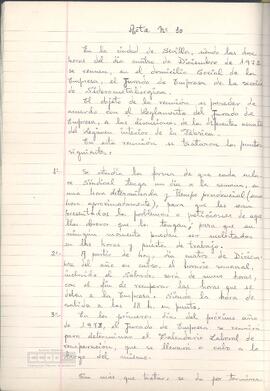 Acta Nº 20
En la ciudad de Sevilla, siendo las doce
horas del día cuatro de Diciembre de 1972
se reunen, en el domicilio Social de la
Empresa, el Jurado de Empresa de la sección
de Siderometalúrgica.
El objeto de la reunión es proceder de
acuerdo con el Reglamento del Jurado de
Empresa, a las
del Regimen interior de la Fábrica.
En esta reunión se trataron los puntos
siguientes:
1º- Se estudia la forma de que cada
Sindical tenga un día a la semana,
una hora determinada, y tiempo prudencial (una
hora aproximadamente), para que les sean
presentados los problemas o peticiones de
que tengan, para que en
ningún momento puedan ser
en las horas y puesto de trabajo.
2º- A partir de hoy, día cuatro de Diciem-
bre del año en curso, el horario semanal,
incluido el Sábado, será de nueve horas,
con el fin de recuperar las horas que se
deben a la Empresa. Siendo la hora de
salida a las 18 h. en punto.
3º- En los primeros días del próximo año
de 1973, el Jurado de Empresa se reunirá
para determinar el Calendario Laboral de
recuperación, que se llevará a cabo a lo
largo del mismo.
Sin más que tratar, se da por terminada